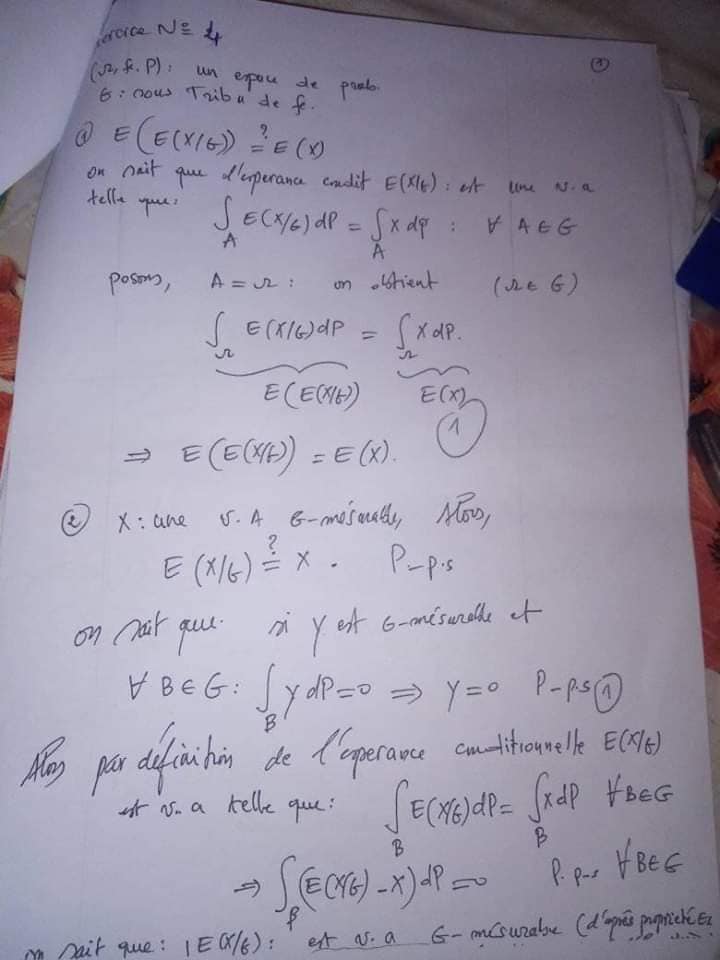 Exercice N° 4
①
(Ω, F, P): un espace de prob.
G: sous Tribu de F.
① E(E(X/G)) ?= E(X)
on sait que l'esperance condit E(X/G): est une v.a
telle que: ∫_A E(X/G) dP = ∫_A X dP : ∀ A ∈ G
posons, A = Ω : on obtient (Ω ∈ G)
∫_Ω E(X/G) dP = ∫_Ω X dP.
E(E(X/G)) E(X)
①
⇒ E(E(X/G)) = E(X).
② X: une V.A G-mésurable, Alors,
E(X/G) ?= X . P-p.s
on sait que si Y est G-mésurable et
∀ B ∈ G: ∫_B Y dP = 0 ⇒ Y = 0 P-p.s ①
Alors par définition de l'esperance conditionnelle E(X/G)
est v.a telle que: ∫_B E(X/G) dP = ∫_B X dP ∀ B ∈ G
⇒ ∫_B (E(X/G) - X) dP = 0 P.p-s ∀ B ∈ G
on sait que: E(X/G): est v.a G-mésurable (d'après propriété